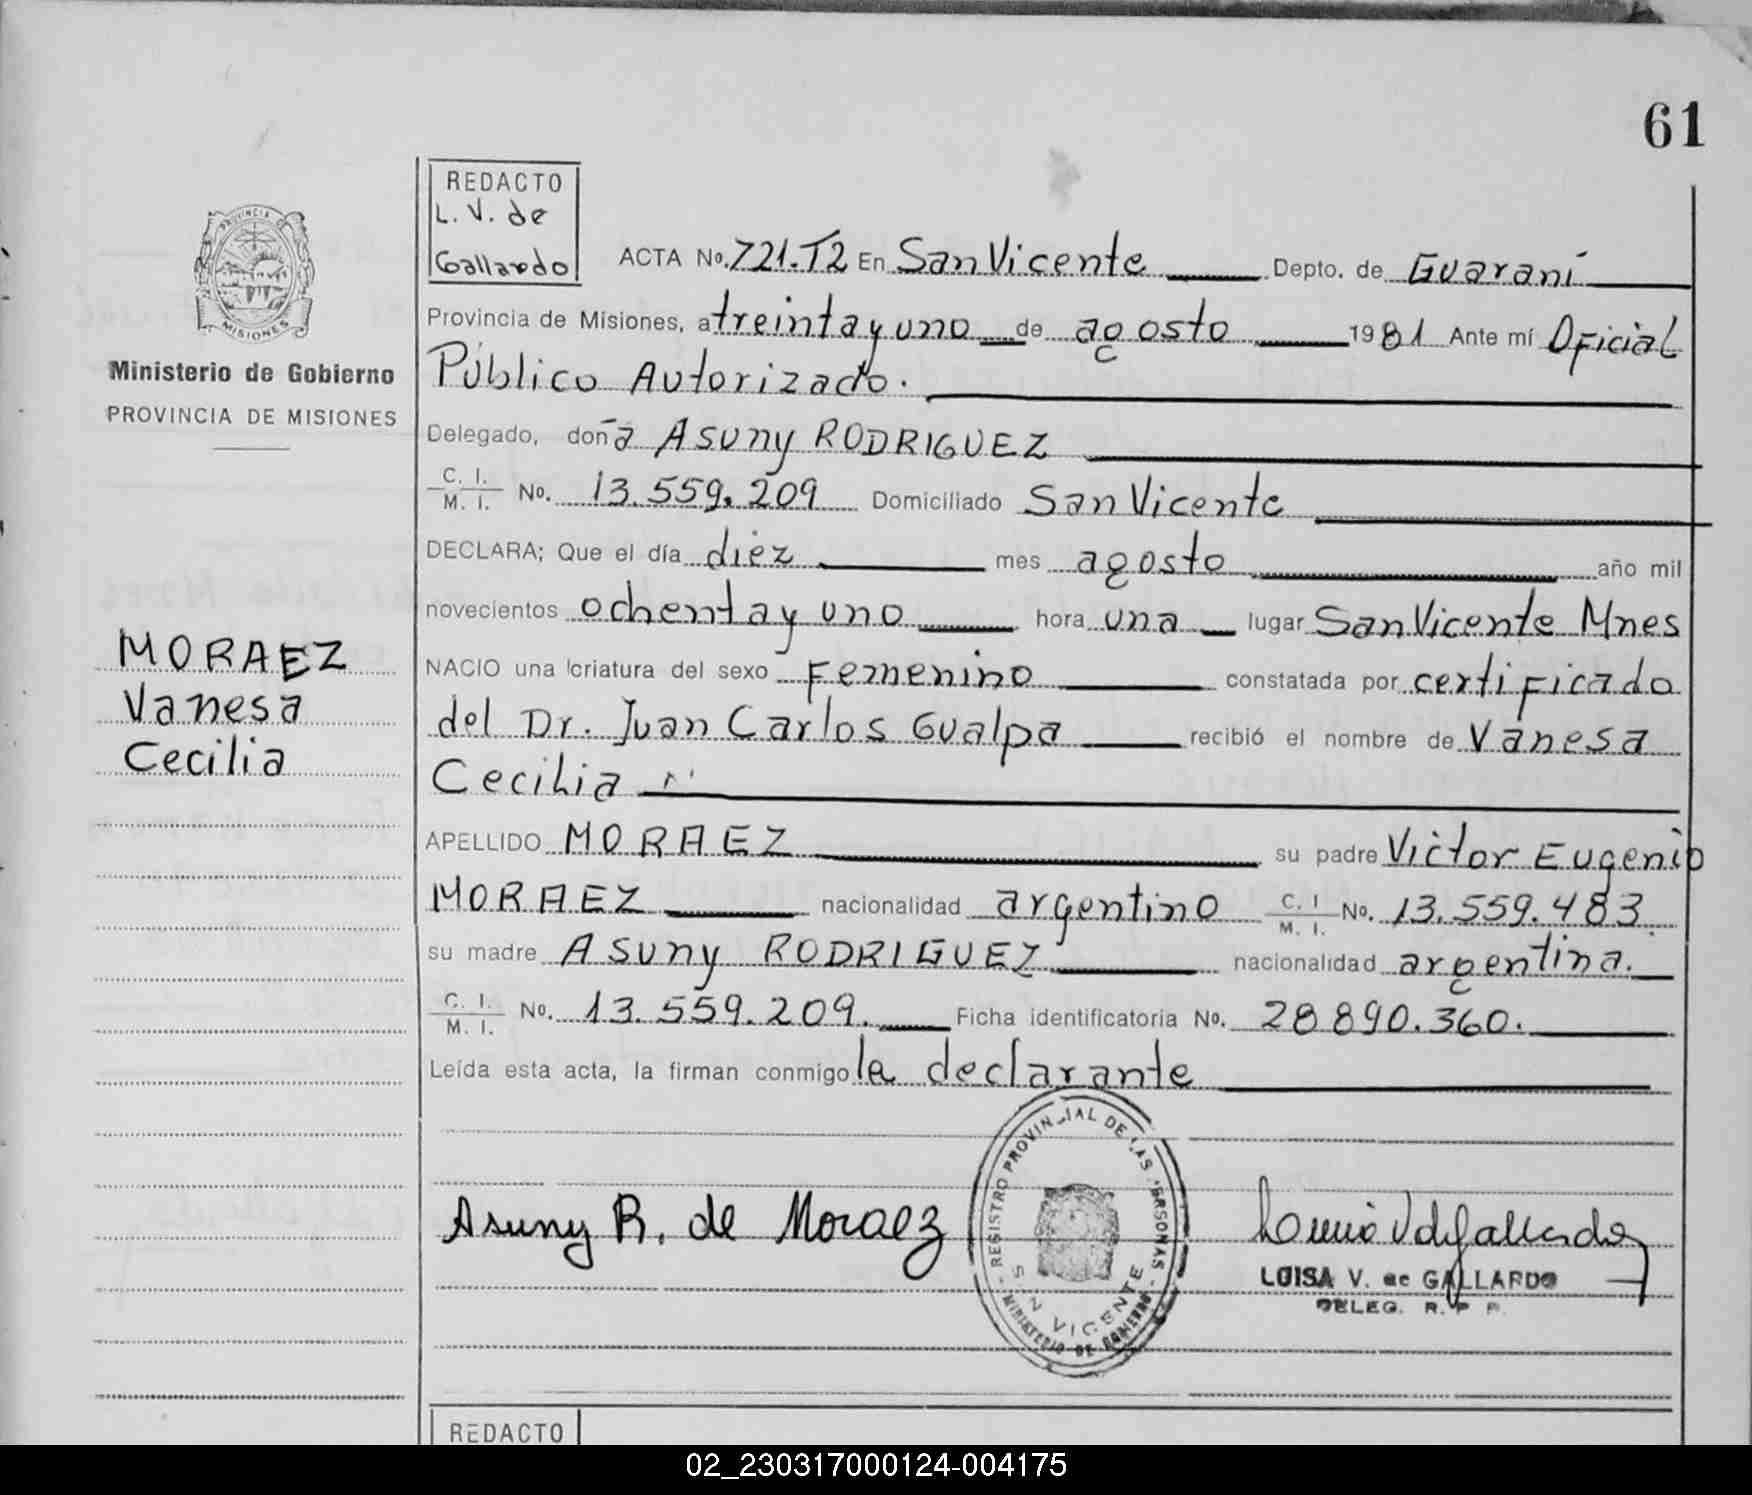 61
REDACTO
L. V. de
Gallardo
ACTA No. 721.T2 En San Vicente Depto. de Guaraní
Provincia de Misiones, a treinta y uno de agosto 1981 Ante mí Oficial
Público Autorizado.
Delegado, doña Asuny RODRIGUEZ
C. I.
M. I. No. 13.559.209 Domiciliado San Vicente
DECLARA; Que el día diez mes agosto año mil
novecientos ochenta y uno hora una lugar San Vicente Mnes
NACIO una criatura del sexo Femenino constatada por certificado
del Dr. Juan Carlos Gualpa recibió el nombre de Vanesa
Cecilia
APELLIDO MORAEZ su padre Victor Eugenio
MORAEZ nacionalidad argentino C. I
M. I. No. 13.559.483
su madre Asuny RODRIGUEZ nacionalidad argentina.
C. I.
M. I. No. 13.559.209. Ficha identificatoria No. 28890.360.
Leída esta acta, la firman conmigo la declarante
PROVINCIA DE
MISIONES
Ministerio de Gobierno
PROVINCIA DE MISIONES
MORAEZ
Vanesa
Cecilia
Asuny R. de Moraez
REGISTRO PROVINCIAL DE LAS PERSONAS
SAN VICENTE
MINISTERIO DE GOBIERNO
LUISA V. de GALLARDO
DELEG. R. P. P.
REDACTO
02_230317000124-004175